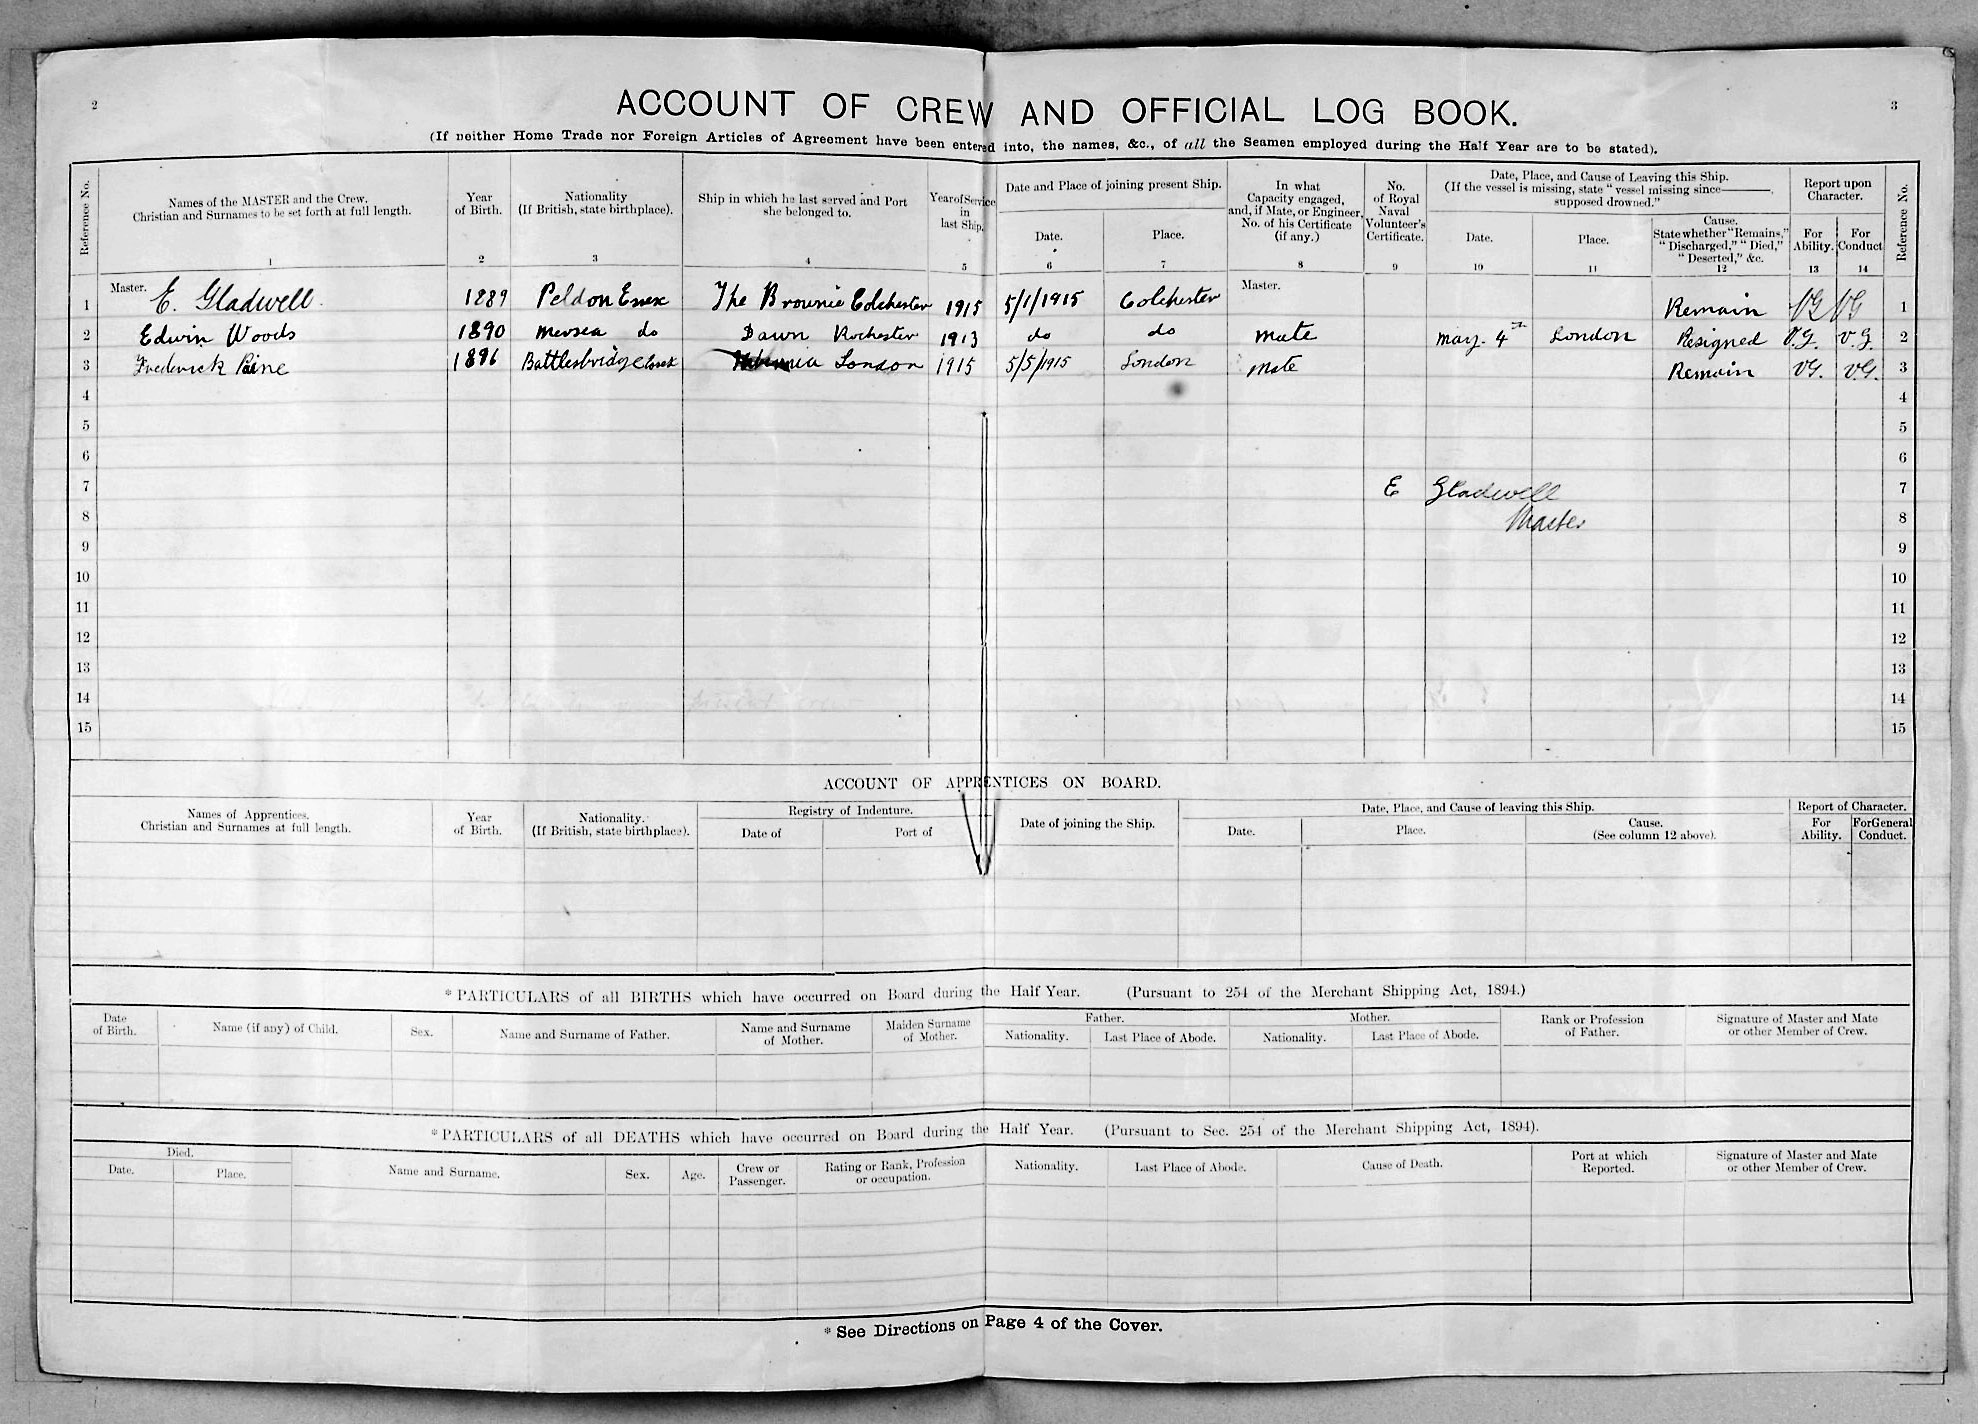 2
3
ACCOUNT OF CREW AND OFFICIAL LOG BOOK.
(If neither Home Trade nor Foreign Articles of Agreement have been entered into, the names, &c., of all the Seamen employed during the Half Year are to be stated).
Reference No.
Names of the MASTER and the Crew. Christian and Surnames to be set forth at full length.
Year of Birth.
Nationality (If British, state birthplace).
Ship in which he last served and Port she belonged to.
Year of Service in last Ship.
Date and Place of joining present Ship.
Date.
Place.
In what Capacity engaged, and, if Mate, or Engineer, No. of his Certificate (if any.)
No. of Royal Naval Volunteer's Certificate.
Date, Place, and Cause of Leaving this Ship. (If the vessel is missing, state "vessel missing since———, supposed drowned."
Date.
Place.
Cause. State whether "Remains," "Discharged," "Died," "Deserted," &c.
Report upon Character.
For Ability.
For Conduct
Reference No.
1 2 3 4 5 6 7 8 9 10 11 12 13 14
1 Master. E. Gladwell 1889 Peldon Essex The Brownie Colchester 1915 5/1/1915 Colchester Master. Remain VG VG 1
2 Edwin Woods 1890 Mersea do Dawn Rochester 1913 do do Mate May 4th London Resigned V.G. V.G. 2
3 Frederick Paine 1896 Battlesbridge Essex London 1915 5/5/1915 London Mate Remain VG. V.G. 3
4 4
5 5
6 6
7 E Gladwell 7
8 Master 8
9 9
10 10
11 11
12 12
13 13
14 14
15 15
ACCOUNT OF APPRENTICES ON BOARD.
Names of Apprentices. Christian and Surnames at full length.
Year of Birth.
Nationality. (If British, state birthplace).
Registry of Indenture.
Date of
Port of
Date of joining the Ship.
Date, Place, and Cause of leaving this Ship.
Date.
Place.
Cause. (See column 12 above).
Report of Character.
For Ability.
For General Conduct.
* PARTICULARS of all BIRTHS which have occurred on Board during the Half Year. (Pursuant to 254 of the Merchant Shipping Act, 1894.)
Date of Birth.
Name (if any) of Child.
Sex.
Name and Surname of Father.
Name and Surname of Mother.
Maiden Surname of Mother.
Father.
Nationality.
Last Place of Abode.
Mother.
Nationality.
Last Place of Abode.
Rank or Profession of Father.
Signature of Master and Mate or other Member of Crew.
* PARTICULARS of all DEATHS which have occurred on Board during the Half Year. (Pursuant to Sec. 254 of the Merchant Shipping Act, 1894).
Died.
Date.
Place.
Name and Surname.
Sex.
Age.
Crew or Passenger.
Rating or Rank, Profession or occupation.
Nationality.
Last Place of Abode.
Cause of Death.
Port at which Reported.
Signature of Master and Mate or other Member of Crew.
* See Directions on Page 4 of the Cover.